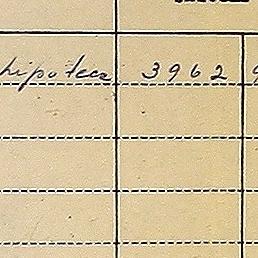 hipoteca 3962